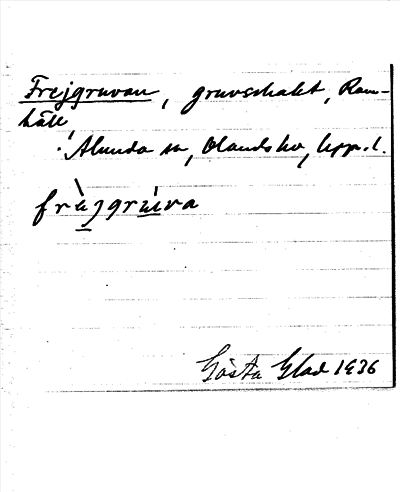 Frejgruvan, gruvschakt, Ram-
häll
Alunda sn, Olands hd, Uppl.
Gösta Glad 1936